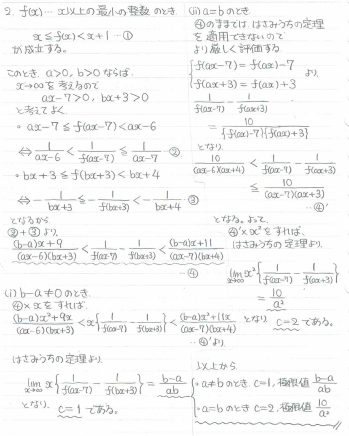 2. f(x)… x以上の最小の整数 のとき.
x ≦ f(x) < x+1 …①
が成立する。
このとき、a>0, b>0 ならば、
x→∞を考えるので
ax-7>0, bx+3>0
と考えてよく
◦ ax-7 ≦ f(ax-7) < ax-6
⇔ 1/(ax-6) < 1/f(ax-7) ≦ 1/(ax-7) …②
◦ bx+3 ≦ f(bx+3) < bx+4
⇔ -1/(bx+3) ≦ -1/f(bx+3) < -1/(bx+4) …③
となるから
②+③より、
((b-a)x+9)/((ax-6)(bx+3)) < 1/f(ax-7) - 1/f(bx+3) < ((b-a)x+11)/((ax-7)(bx+4))
…④
(i) b-a≠0のとき.
④×xをすれば、
((b-a)x²+9x)/((ax-6)(bx+3)) < x{1/f(ax-7) - 1/f(bx+3)} < ((b-a)x²+11x)/((ax-7)(bx+4))
…④'より、
はさみうちの定理より
lim x→∞ x{1/f(ax-7) - 1/f(bx+3)} = (b-a)/ab
となり、c=1である。
(ii) a=bのとき.
④のままでは、はさみうちの定理
を適用できないので
より厳しく評価する.
{f(ax-7) = f(ax)-7
f(ax+3) = f(ax)+3 より、
1/f(ax-7) - 1/f(ax+3)
= 10/({f(ax)-7}{f(ax)+3})
となり
10/((ax-6)(ax+4)) < 1/f(ax-7) - 1/f(ax+3)
≦ 10/((ax-7)(ax+3))
…④'
となる。よって、
④'×x²をすれば、
はさみうちの定理より、
lim x→∞ x²{1/f(ax-7) - 1/f(bx+3)}
= 10/a²
となり c=2である。
以上から
◦ a≠bのとき c=1, 極限値 (b-a)/ab
◦ a=bのとき c=2, 極限値 10/a²